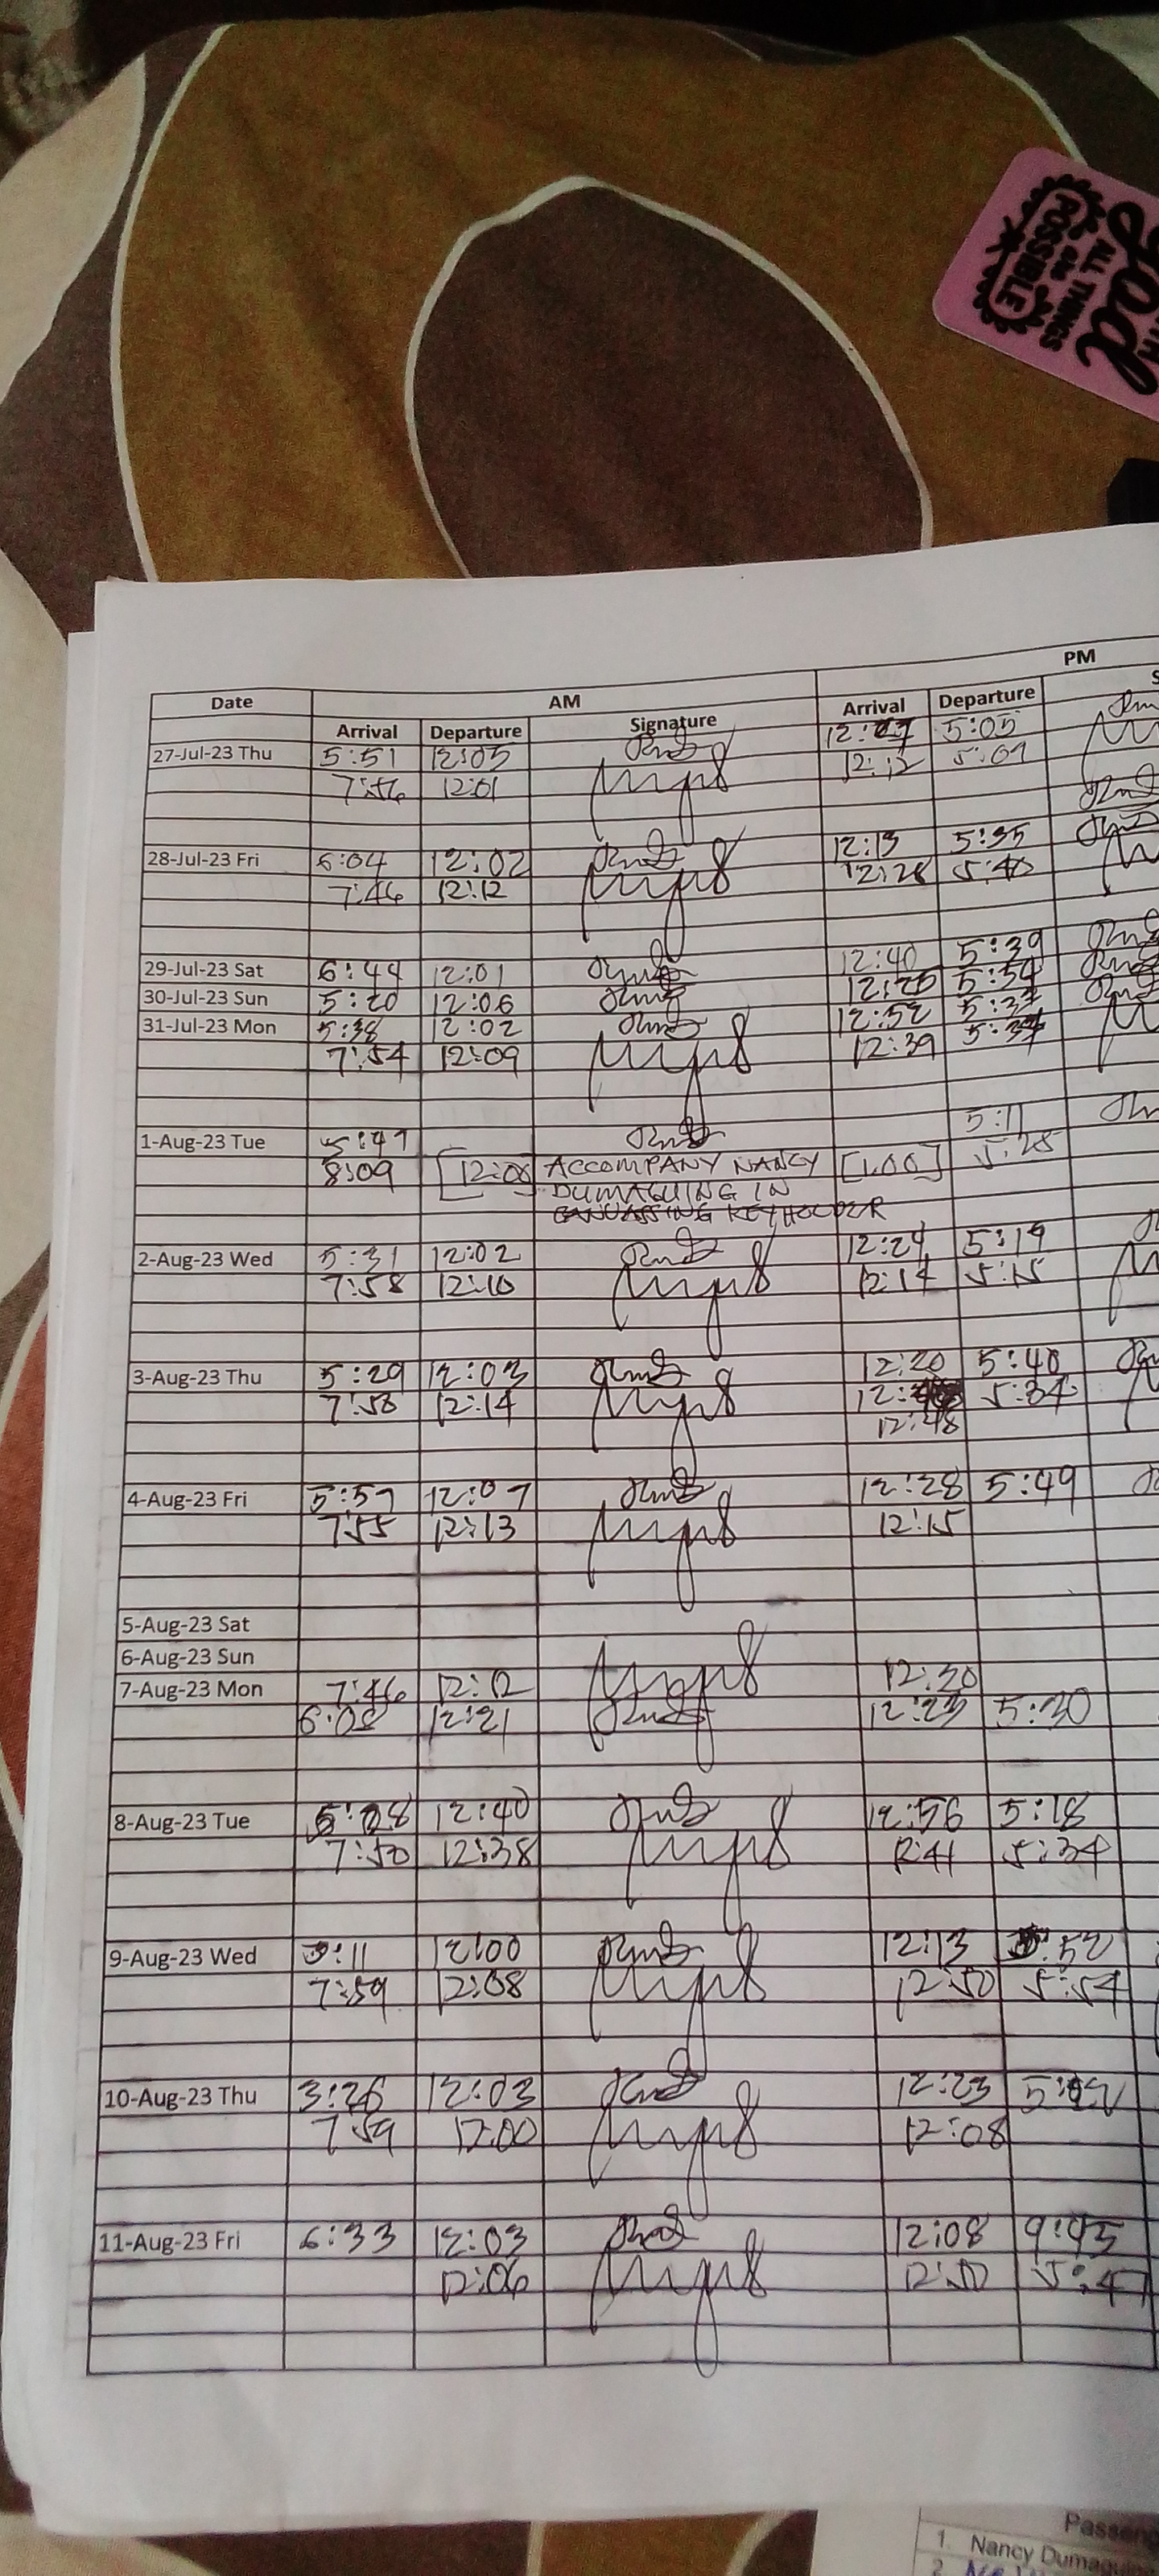 God
ALL THINGS
are
POSSIBLE
PM
Date AM
Arrival Departure
Arrival Departure Signature
27-Jul-23 Thu 5:51 12:05 5:05
7:56 12:01 12:12 5:09
28-Jul-23 Fri 6:04 12:02 12:13 5:35
7:46 12:12 12:28 5:40
29-Jul-23 Sat 6:44 12:01 12:40 5:39
30-Jul-23 Sun 5:20 12:06 12:25 5:54
31-Jul-23 Mon 5:38 12:02 12:52
7:54 12:09 12:39
1-Aug-23 Tue 5:47 5:11
8:09 [12:00] ACCOMPANY NANCY [1:00] 5:28
DUMAGUING IN
CANVASSING KEYHOLDER
2-Aug-23 Wed 5:31 12:02 12:24 5:19
7:58 12:10 12:14 5:15
3-Aug-23 Thu 5:29 12:03 12:20 5:40
7:58 12:14 5:34
12:48
4-Aug-23 Fri 5:57 12:07 12:28 5:49
7:55 12:13 12:15
5-Aug-23 Sat
6-Aug-23 Sun
7-Aug-23 Mon 7:46 12:12 12:30
6:08 12:21 12:23 5:30
8-Aug-23 Tue 12:40 12:56 5:18
7:50 12:38 12:41 5:34
9-Aug-23 Wed 12:00 12:13 5:52
7:59 12:08 12:50 5:54
10-Aug-23 Thu 3:26 12:03 12:23
7:59 12:00 12:08
11-Aug-23 Fri 6:33 12:03 12:08
12:06 12:50
1. Nancy
2.